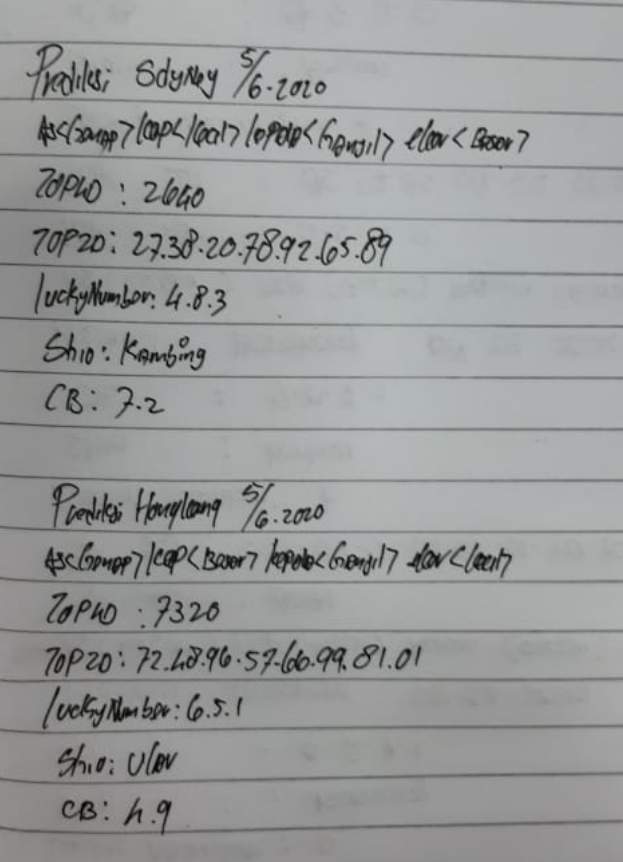 Prediksi Sdyney 5/6.2020
As<Genap> kop<kecil> kepala<Ganjil> ekor<Besar>
TOP4D : 2640
TOP2D: 27.38.20.78.92.65.89
luckyNumber: 4.8.3
Shio: Kambing
CB: 7.2
Prediksi Hongkong 5/6.2020
As<Genap> kop<Besar> kepala<Ganjil> ekor<kecil>
TOP4D : 7320
TOP2D: 72.48.96.57.66.99.81.01
luckyNumber: 6.5.1
Shio: Ular
CB: 4.9